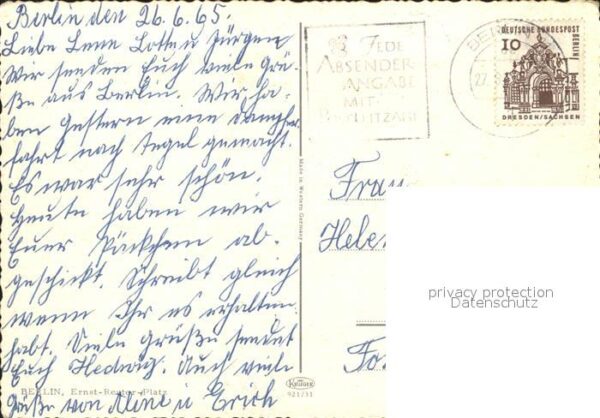 Berlin den 26.6.65.
Liebe Lenn Lotte u Jürgen
Wir senden Euch viele Grü-
ße aus Berlin. Wir ha-
ben gestern eine Dampfer
fahrt nach Tegel gemacht.
Es war sehr schön.
Heute haben wir
Euer Päckchen ab-
geschickt. Schreibt gleich
wenn Ihr es erhalten
habt. Viele Grüße sendet
Euch Hedwig. Auch viele
Grüße von u Erich
BERLIN, Ernst-Reuter-Platz
Made in Western Germany
Krüger
921/31
JEDE
ABSENDER
ANGABE
MIT
POSTLEITZAHL
BERLIN
27.
DEUTSCHE BUNDESPOST
BERLIN
10
DRESDEN/SACHSEN
Frau
Hele
privacy protection
Datenschutz